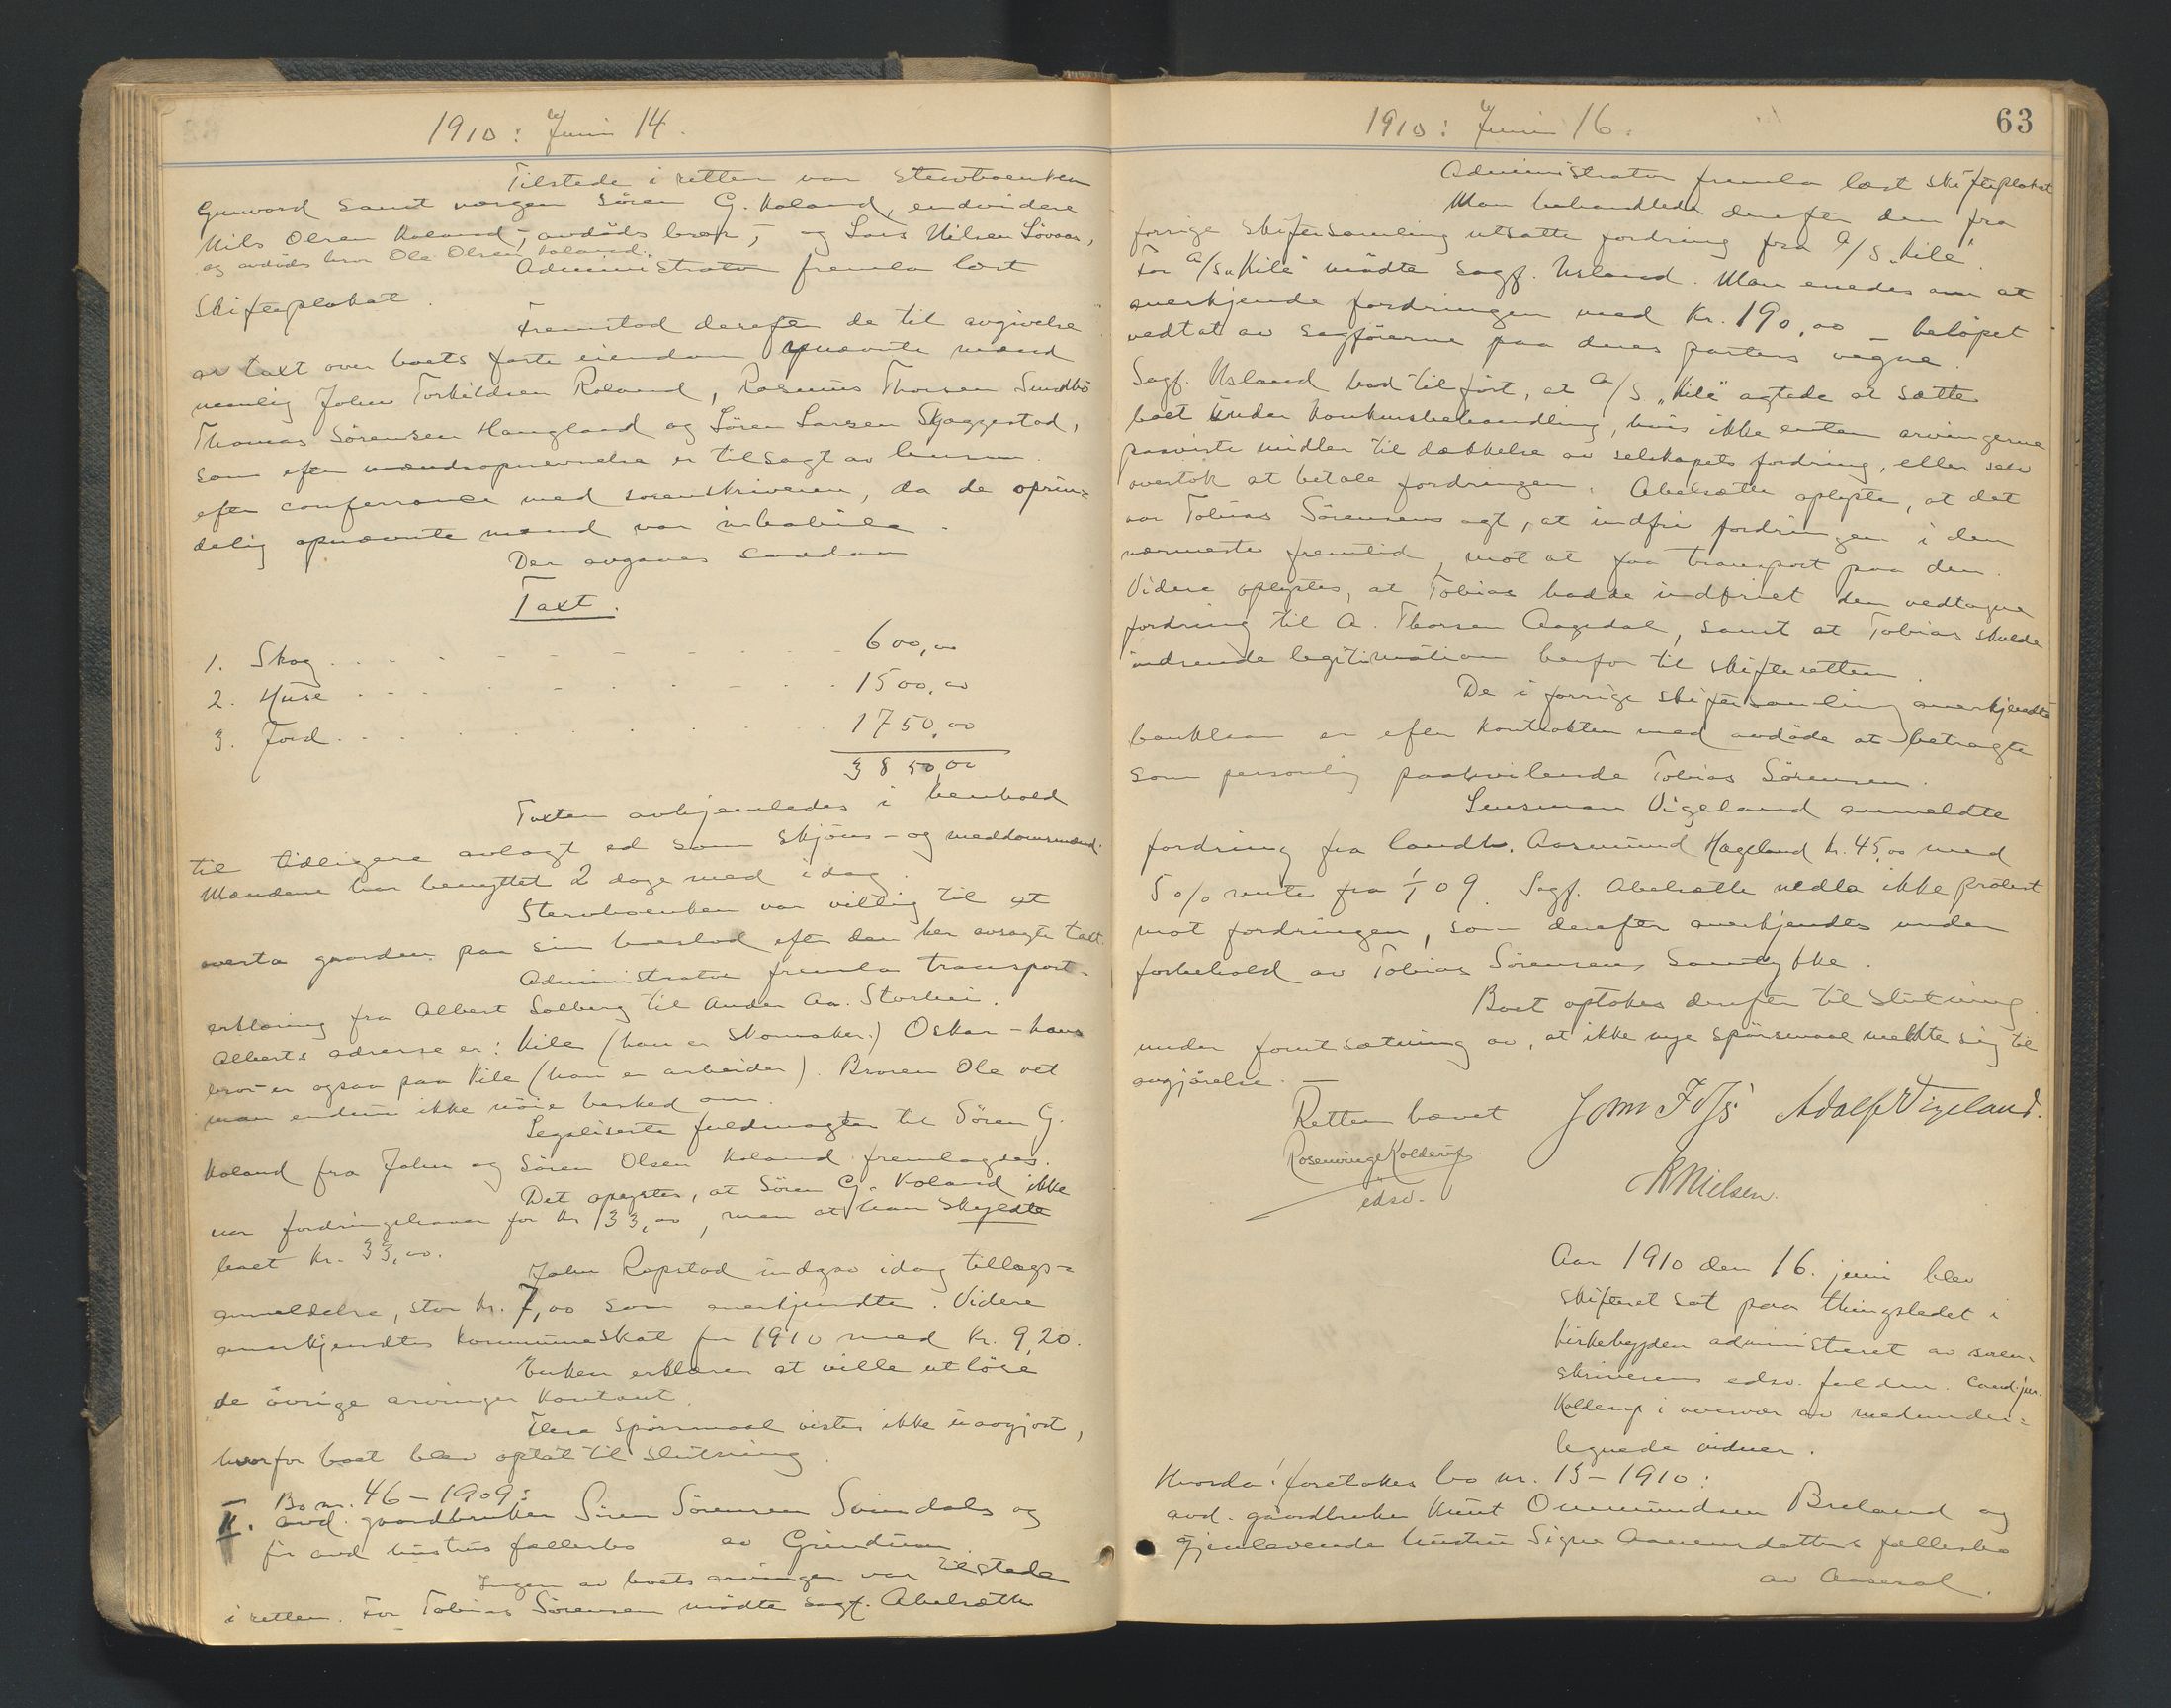 1910: Juni 14.
Tilstede i retten var stervboenken
Gunvord samt vergen Sören G. Koland, endvidere
Nils Olsen Koland, avdöds bror, og Lars Nilsen Lövaas,
og avdöds bror Ole Olsen Koland.
Administrator fremla læst
skifteplakat.
Fremstod derefter de til avgivelse
av taxt over boets faste eiendom opnævnte mænd
nemlig John Torkildsen Roland, Rasmus Thorsen Sundbö
Thomas Sörensen Haugland og Sören Larsen Skjeggestad,
som efter mændsopnævnelse er tilsagt av lensm.
efter conferrance med sorenskriveren, da de oprin-
delig opnævnte mænd var inhabile.
Der avgaves saadan
Taxt.
1. Skog . . . . 600,00
2. Huse . . . . 1500,00
3. Jord . . . . 1750,00
3850,00
Taxten avhjemledes i henhold
til tidligere avlagt ed som skjöns- og meddomsmænd.
Mændene har benyttet 2 dage med idag.
Stervboenken var villig til at
overta gaarden paa sin boeslod efter den her avsagte taxt.
Administrator fremla transport-
erklæring fra Albert Solberg til Anders Aa. Storlien.
Alberts adresse er: Kile (han er skomaker.) Oskar - hans
bror - er ogsaa paa Kile (han er arbeider). Broren Ole vet
man endnu ikke nöie besked om.
Legaliserte fuldmagter til Sören G.
Koland fra John og Sören Olsen Koland fremlagdes.
Det oplystes, at Sören G. Koland ikke
var fordringshaver for kr 33,00, men at han skyldte
boet kr. 33,00.
John Repstad indgav idag tillægs-
anmeldelse, stor kr. 7,00 som anerkjendtes. Videre
anerkjendtes kommuneskat for 1910 med kr. 9,20.
Enken erklærer at ville utlöse
de övrige arvinger kontant.
Flere spörsmaal vistes ikke uavgjort,
hvorfor boet blev optat til slutning.
II. Bo nr. 46 - 1909:
avd. gaardbruker Sören Sörensen Svindals og
för avd hustrus fællesbo av Grindum
Ingen av boets arvinger var tilstede
i retten. For Tobias Sörensen mödte sagf. Abelsæth
1910: Juni 16.
63
Administrator fremla læst skifteplakat
Man behandlede derefter den fra
forrige skiftesamling utsatte fordring fra A/S "Kile".
For A/S "Kile" mödte sagf. Usland. Man enedes om at
anerkjende fordringen med Kr. 190,00 - belöpet
vedtat av sagförerne paa deres parters vegne.
Sagf. Usland bad tilfört, at A/S "Kile" agtede at sætte
boet under konkursbehandling, hvis ikke enten arvingerne
paaviste midler til dækkelse av selskapets fordring, eller selv
overtok at betale fordringen. Abelsæth oplyste, at det
var Tobias Sörensens agt, at indfri fordringen i den
nærmeste fremtid, mot at faa transport paa den.
Videre oplystes, at Tobias hadde indfriet den vedtagne
fordring til A. Thorsen Aagedal, samt at Tobias skulde
indsende legitimation herfor til skifteretten.
De i forrige skiftesamling anerkjendte
banklaan er efter kontrakten med avdöde at betragte
som personlig paahvilende Tobias Sörensen.
Lensmann Vigeland anmeldte
fordring fra landh. Aasmund Hægeland kr. 45,00 med
5% rente fra 1/1 09. Sagf. Abelsæth nedla ikke protest
mot fordringen, som derefter anerkjendtes under
forbehold av Tobias Sörensens samtykke.
Boet optokes derefter til slutning
under forutsætning av, at ikke nye spörsmaal meldte sig til
avgjörelse. -
Retten hævet
Rosenvinge Kolderup
edsv.
John Foss Adolf Vigeland.
K Nielsen.
Aar 1910 den 16. juni blev
skifteret sat paa thingstedet i
Kirkebygden administreret av soren-
skriverens edsv. fuldm. cand. jur.
Kolderup i overvær av medunder-
tegnede vidner.
Hvorda! foretokes bo nr. 15 - 1910:
avd. gaardbruker Knut Ommundsen Breland og
gjenlevende hustru Signe Aanensdatters fællesbo
av Aaseral.